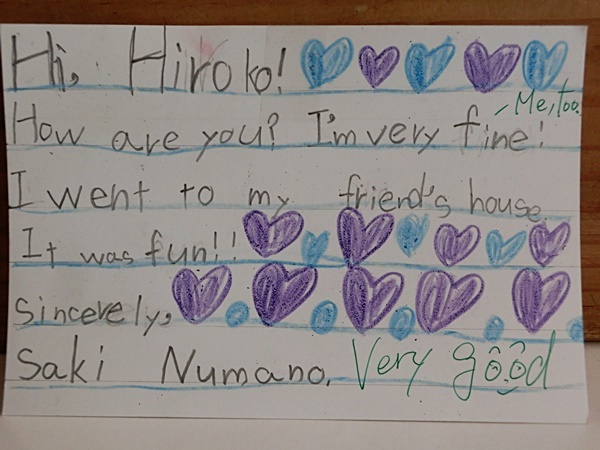 Hi, Hiroko!
Me, too.
How are you? I'm very fine!
I went to my friend's house.
It was fun!!
Sincerely,
Saki Numano. Very good